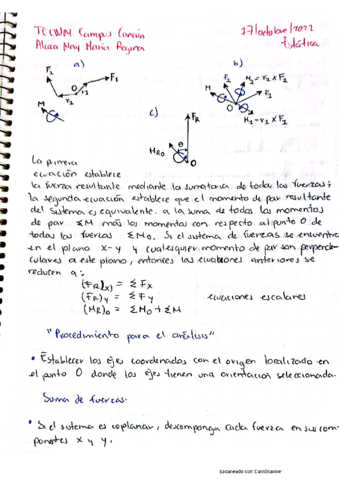 TECNM Campus Cancún
27/octubre/2022
Estática
a)
b)
F₂
F₁
O
r₂
r₁
M
M
F₂
M₂ = r₂ x F₂
F₁
O
M₁ = r₁ x F₁
c)
F_R
M_RO
θ
O
La primera
ecuación establece
la fuerza resultante mediante la sumatoria de todas las fuerzas;
la segunda ecuación establece que el momento de par resultante
del sistema es equivalente a la suma de todos los momentos
de par ΣM más los momentos con respecto al punto O de
todas las fuerzas ΣMo. Si el sistema de fuerzas se encuentra
en el plano x-y y cualesquier momento de par son perpendi-
culares a este plano, entonces las ecuaciones anteriores se
reducen a:
(F_R)x) = ΣFx
(F_R)y = ΣFy
ecuaciones escalares
(M_R)o = ΣMo + ΣM
"Procedimiento para el análisis"
• Establecer los ejes coordenados con el origen localizado en
el punto O donde los ejes tienen una orientación seleccionada.
Suma de fuerzas.
• Si el sistema es coplanar, descomponga cada fuerza en sus com-
ponentes x y y.
Escaneado con CamScanner